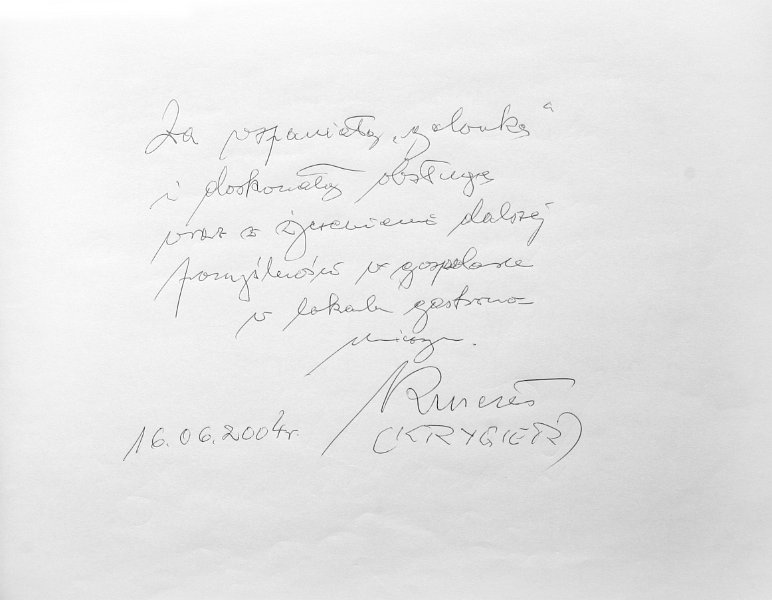 Za wspaniałą „golonkę"
i doskonałą obsługę
wraz z życzeniami dalszej
pomyślności w gospodarce
w lokalu gastrono-
micznym.
16.06.2004r.